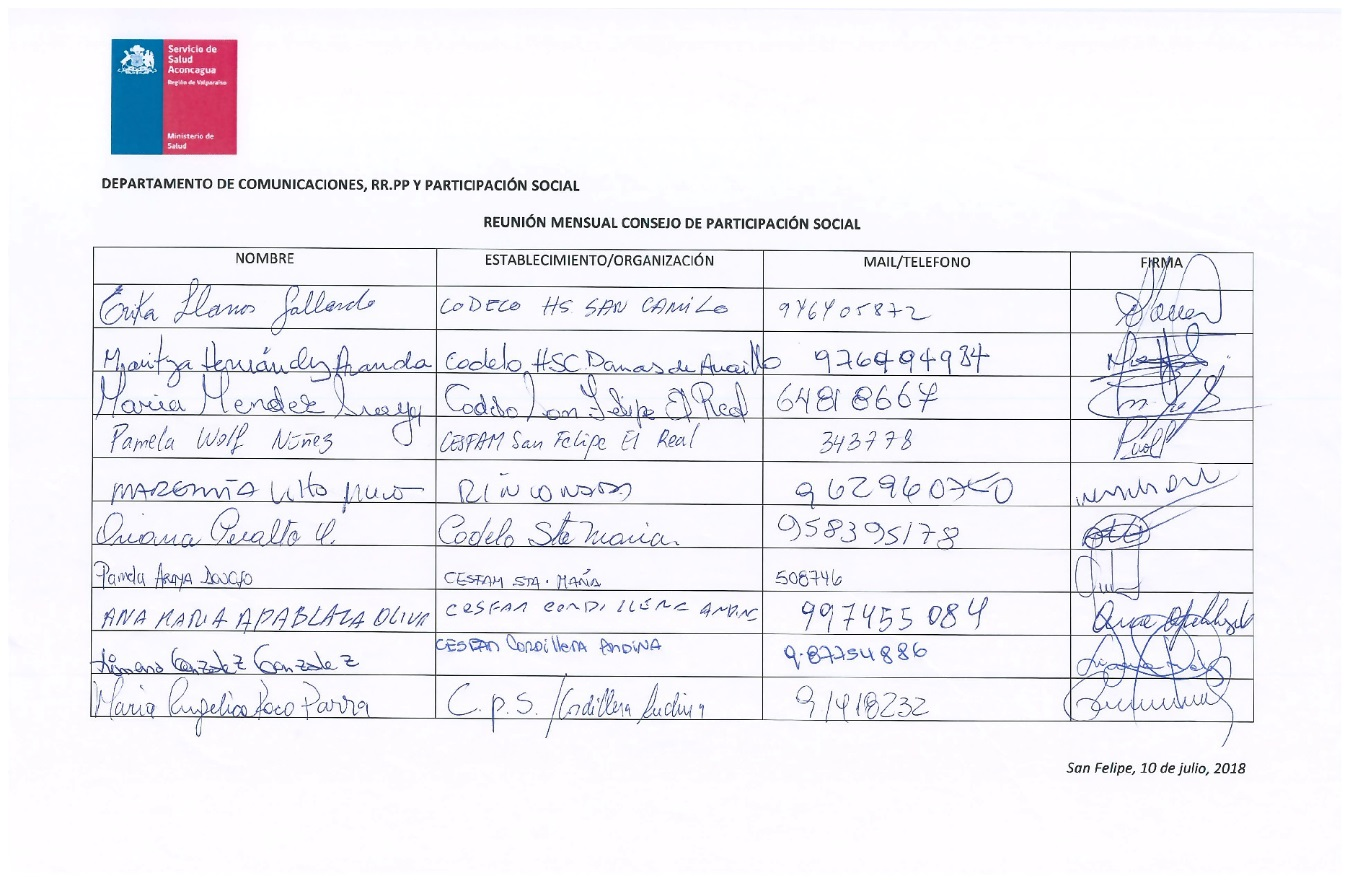 Servicio de
Salud
Aconcagua
Región de Valparaíso
Ministerio de
Salud
DEPARTAMENTO DE COMUNICACIONES, RR.PP Y PARTICIPACIÓN SOCIAL
REUNIÓN MENSUAL CONSEJO DE PARTICIPACIÓN SOCIAL
NOMBRE ESTABLECIMIENTO/ORGANIZACIÓN MAIL/TELEFONO FIRMA
Erika Llanos Gallardo CODECO HS. SAN CAMILO 976705872
Maritza Hernández Aranda Codelo HSC. Damas de 976494984
Maria Mendez San Felipe El Real 64818667
Pamela Wolf Núñez CESFAM San Felipe El Real 343778
RINCONADA
Oriana Peralta Codelo Sta Maria. 958395178
Pamela ARAYA CESFAM STA. MARÍA 508746
ANA MARIA APABLAZA OLIVA CESFAM CORDILLERA ANDINA 997455084
Gonzalez Gonzalez CESFAM Cordillera ANDINA 9.87754886
Maria Angelica Parra C.P.S. / Cordillera Andina 91418232
San Felipe, 10 de julio, 2018